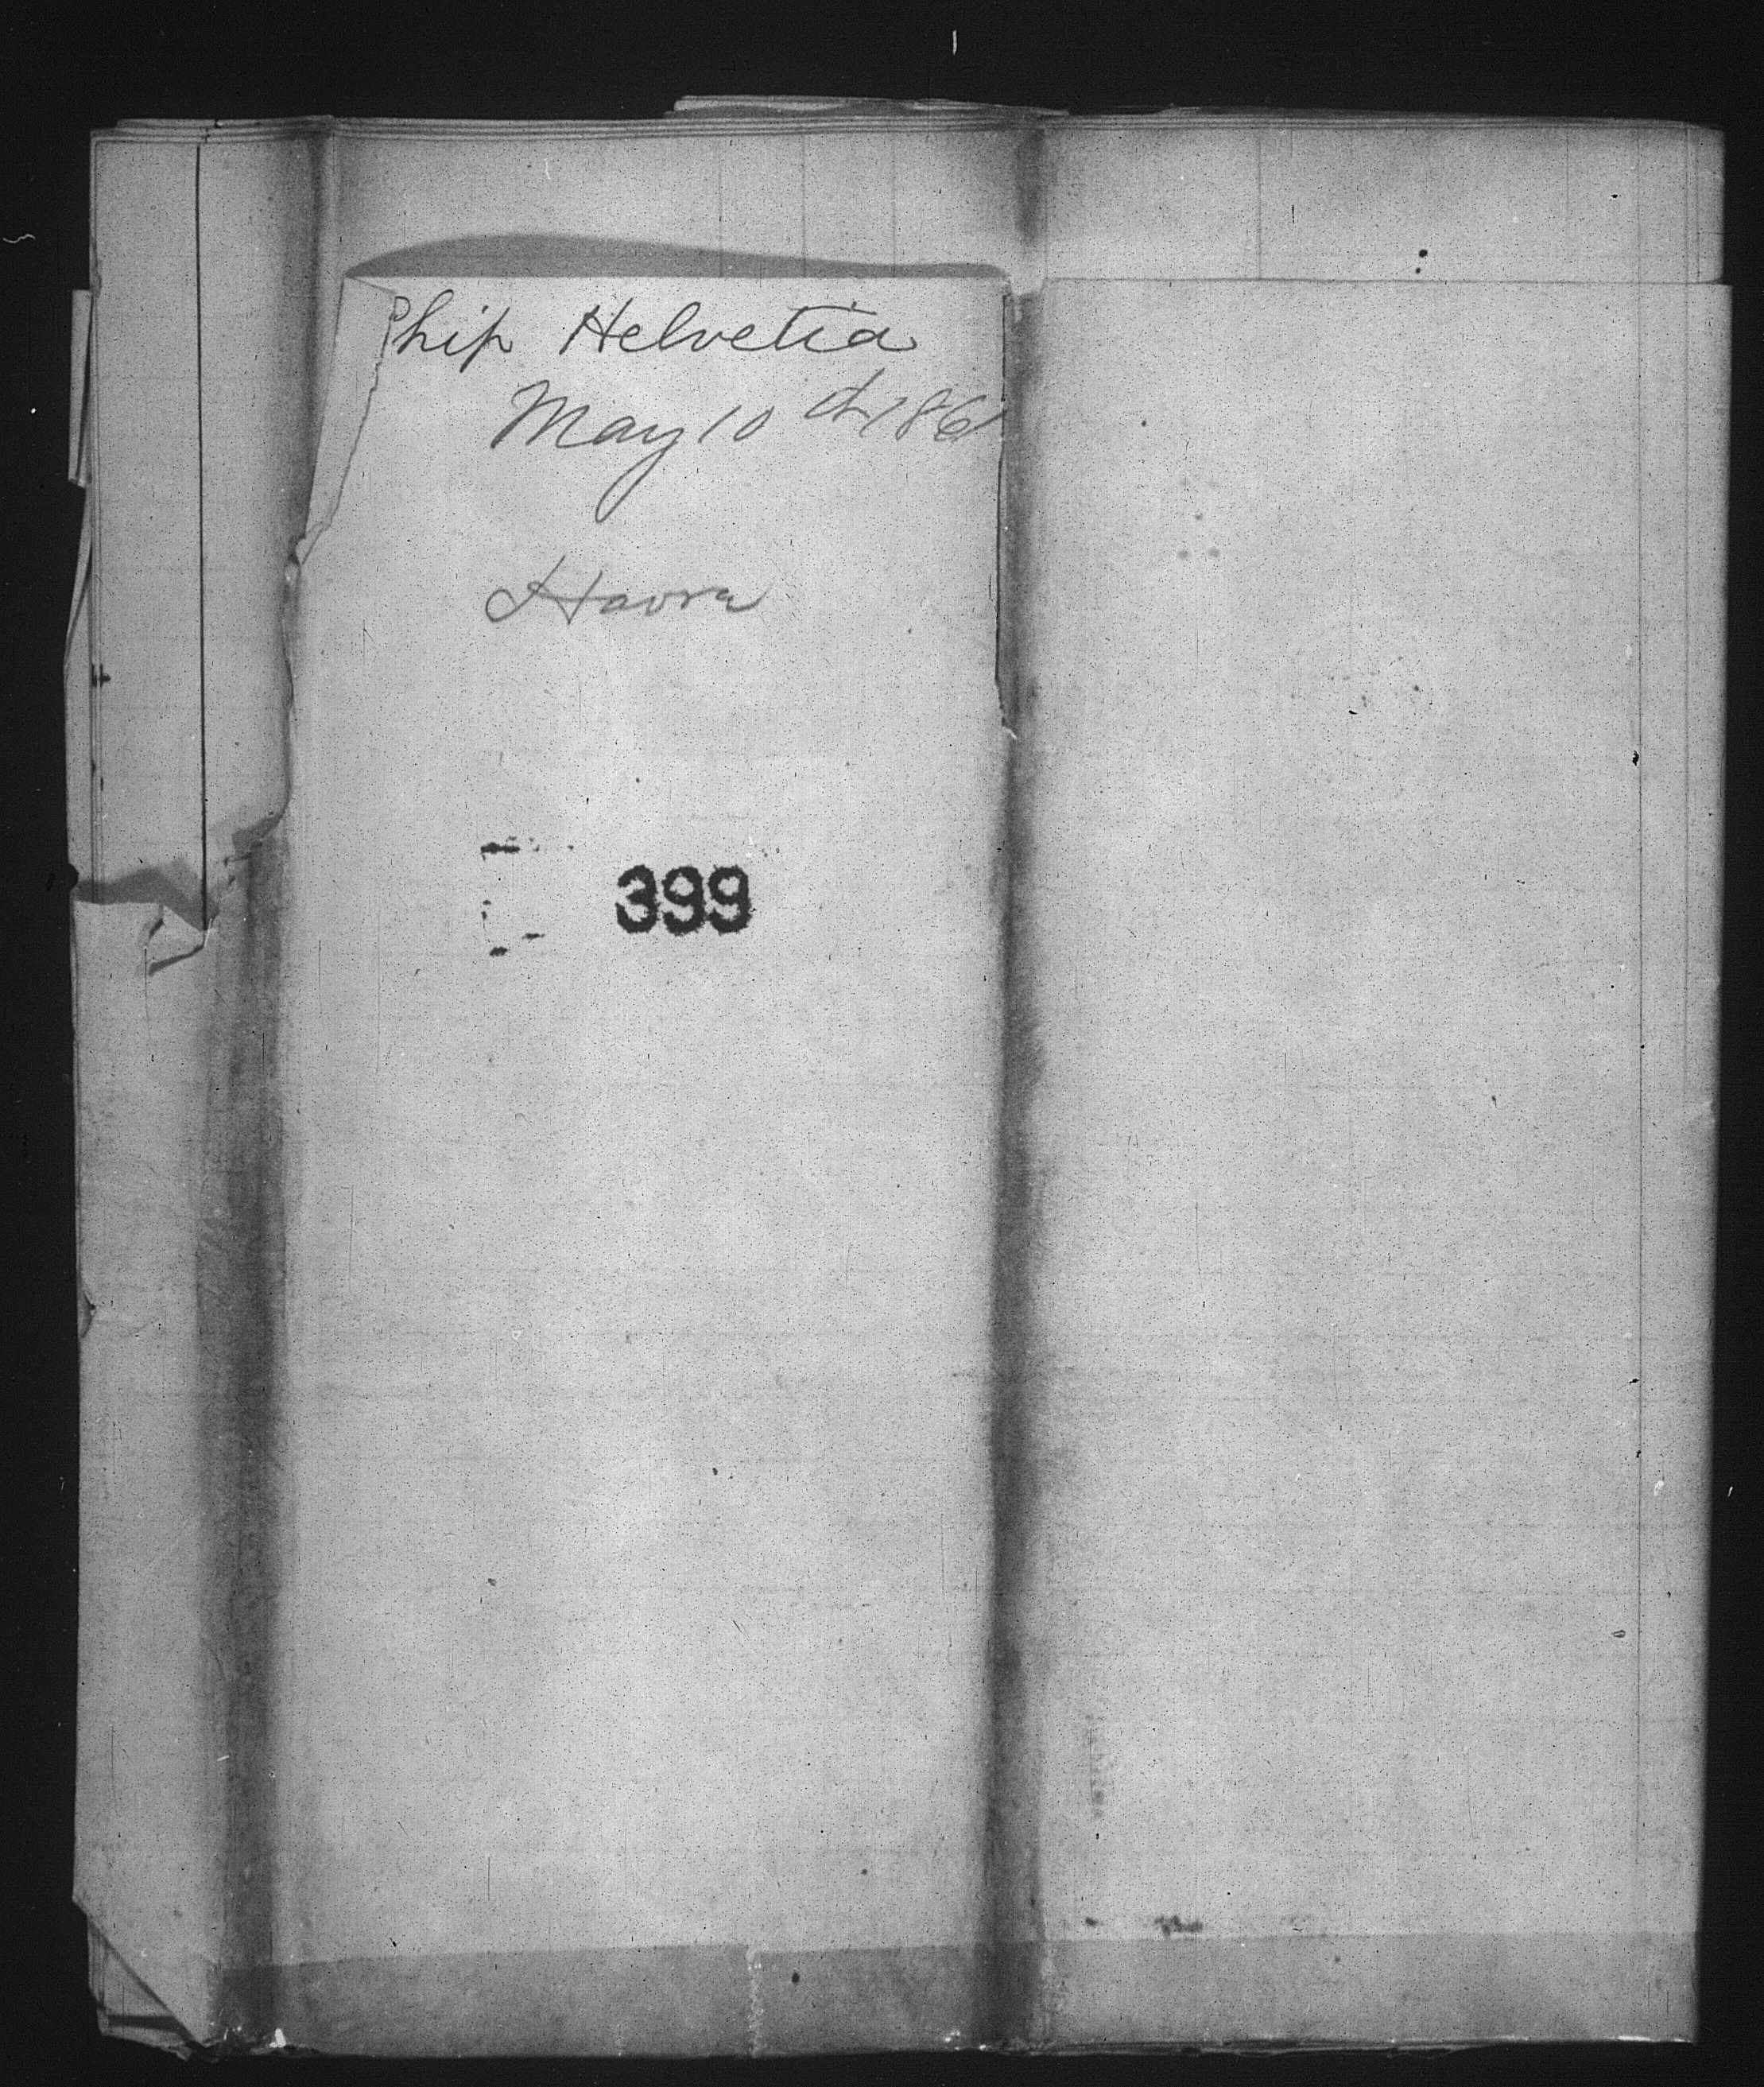 Ship Helvetia
May 10th 186
Havre
399